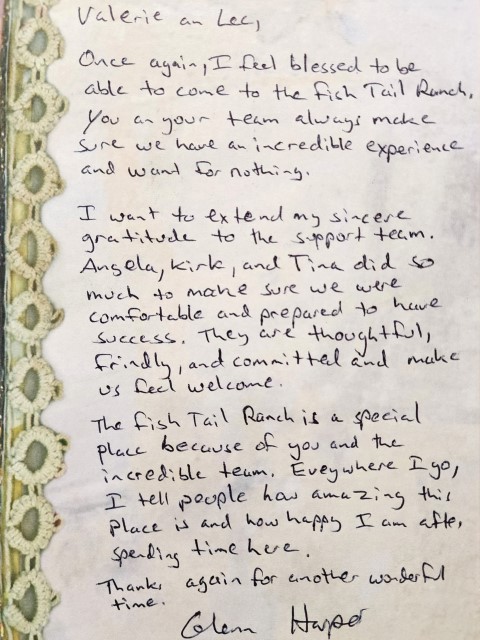 Valerie an Lee,
Once again, I feel blessed to be
able to come to the Fish Tail Ranch.
You an your team always make
sure we have an incredible experience
and want for nothing.
I want to extend my sincere
gratitude to the support team.
Angela, Kirk, and Tina did so
much to make sure we were
comfortable and prepared to have
success. They are thoughtful,
frindly, and committed and make
us feel welcome.
The Fish Tail Ranch is a special
place because of you and the
incredible team. Eveywhere I go,
I tell poeple how amazing this
place is and how happy I am after
spending time here.
Thanks again for another wonderful
time.
Glenn Harper